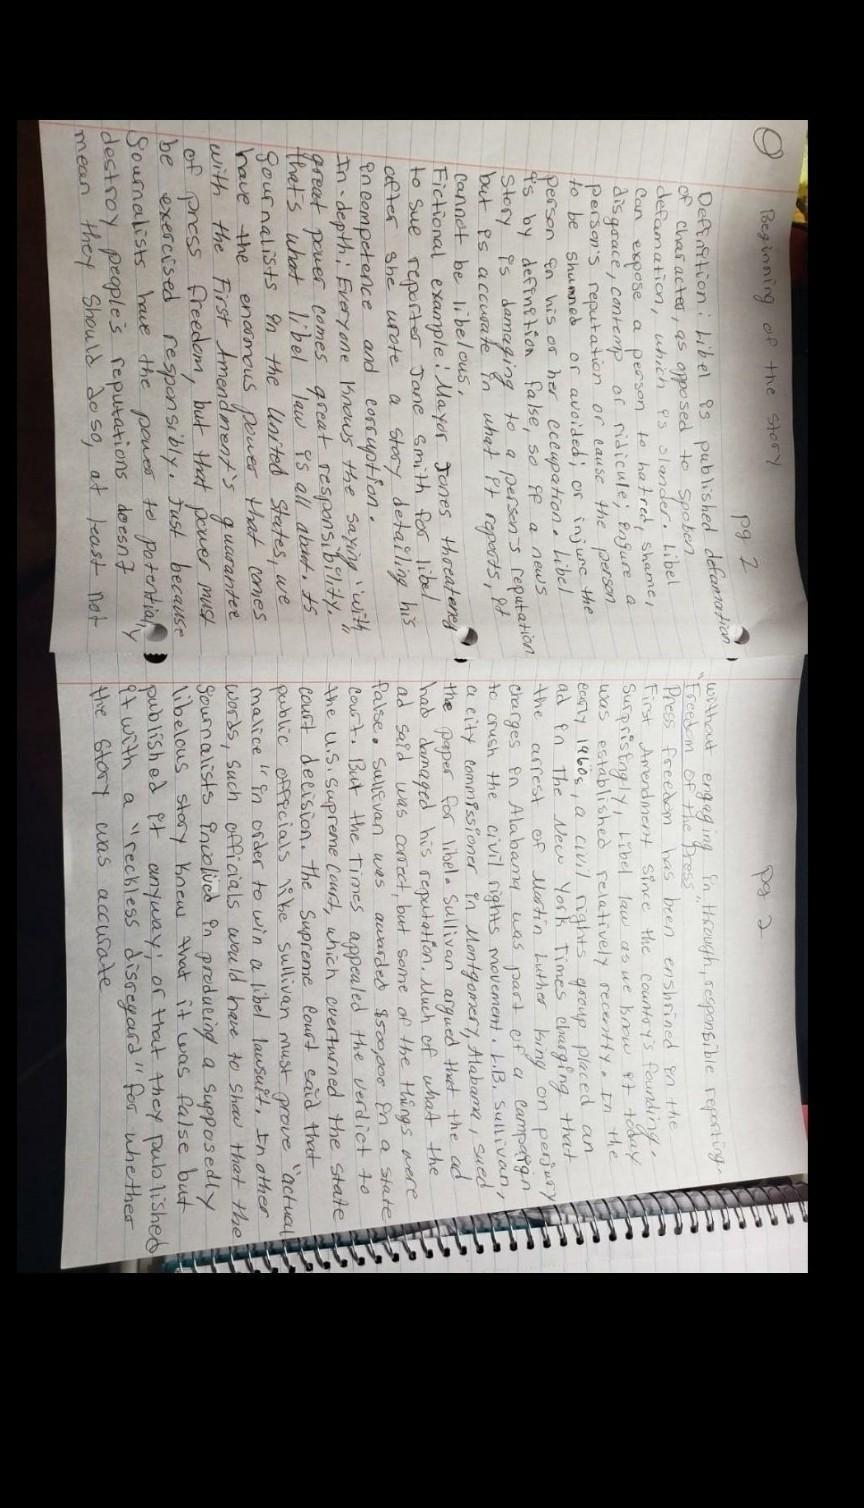 Beginning of the story
pg 2
Definition: Libel is published defamation
of character, as opposed to spoken
defamation, which is slander. Libel
can expose a person to hatred, shame,
disgrace, contemp or ridicule; injure a
person's reputation or cause the person
to be shunned or avoided; or injure the
person in his or her occupation. Libel
is by definition false, so if a news
story is damaging to a person's reputation
but is accurate in what it reports, it
cannot be libelous.
Fictional example: Mayor Jones threatened
to sue reporter Jane Smith for libel
after she wrote a story detailing his
incompetence and corruption.
In-depth: Everyone knows the saying, "with
great power comes great responsibility."
That's what libel law is all about. As
journalists in the United States, we
have the enormous power that comes
with the First Amendment's guarantee
of press freedom, but that power must
be exercised responsibly. Just because
journalists have the power to potentially
destroy people's reputations doesn't
mean they should do so, at least not
pg 2
without engaging in through, responsible reporting.
"Freedom of the Press"
Press freedom has been enshrined in the
First Amendment since the country's founding.
Surprisingly, Libel law as we know it today
was established relatively recently. In the
early 1960s, a civil rights group placed an
ad in The New York Times charging that
the arrest of Martin Luther King on perjury
charges in Alabama was part of a campaign
to crush the civil rights movement. L.B. Sullivan,
a city commissioner in Montgomery, Alabama, sued
the paper for libel. Sullivan argued that the ad
had damaged his reputation. Much of what the
ad said was correct, but some of the things were
false. Sullivan was awarded $500,000 in a state
court. But the Times appealed the verdict to
the U.S. Supreme Court, which overturned the state
court decision. The Supreme Court said that
public officials like Sullivan must prove "actual
malice" in order to win a libel lawsuit. In other
words, such officials would have to show that the
journalists involved in producing a supposedly
libelous story knew that it was false but
published it anyway; or that they published
it with a "reckless disregard" for whether
the story was accurate